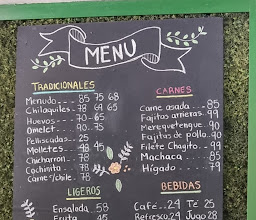 MENU
TRADICIONALES
Menudo--- 85 75 68
Chilaquiles-- 78 69 65
Huevos--- 70-65
Omelet--- 90-75
Pellizcadas-- 25
Molletes-- 48 45
Chicharron-- 78
Cochinita-- 78
Carne s/chile-- 78
LIGEROS
Ensalada 58
Fruta 45
CARNES
Carne asada---- 85
Fajitas arrieras-- 99
Merequetengue-- 90
Fajitas de pollo-- 90
Filete Chagito-- 99
Machaca---- 85
Hígado---- 79
BEBIDAS
Café--29 Té 25
Refresco 29 Jugo 28